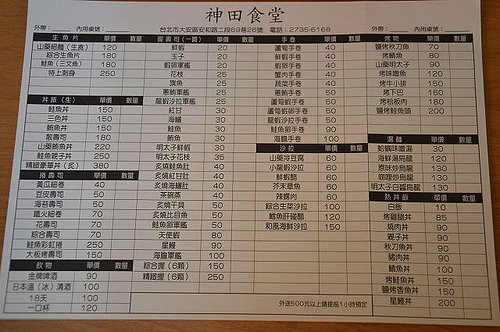 神田食堂
外帶： 內用桌號： 台北市大安區安和路二段69巷26號 電話：2735-6168 外帶： 內用桌號：
生魚片 單價 數量
山藥細麵（生食） 120
綜合生魚片 180
鮭魚（三文魚） 180
特上刺身 250
丼飯（生） 單價 數量
鮭魚丼 150
三色丼 150
鮪魚丼 150
散壽司 180
山藥鮪魚丼 220
鮭魚親子丼 250
精緻豪華丼（炙） 380
捲壽司 單價 數量
黃瓜細卷 40
豆皮壽司 50
海苔壽司 50
鐵火細卷 70
花壽司 70
綜合壽司 70
鮭魚彩虹捲 250
大板烤壽司 150
飲物 單價 數量
金牌啤酒 90
日本溫（冰）清酒 100
18天 100
一口杯 120
握壽司（一貫） 單價 數量
鮮蝦 20
玉子 20
蝦卵軍艦 20
花枝 25
旗魚 25
蔥鮪軍艦 25
龍蝦沙拉軍艦 25
紅甘 30
海鱺 30
鮭魚 30
鮪魚 30
明太子鮮蝦 30
明太子花枝 35
炙燒鮭魚肚 40
炙燒紅甘肚 40
炙燒海鱺肚 40
茶碗蒸 40
炙燒干貝 50
炙燒比目魚 50
鮭魚卵軍艦 50
天使蝦 80
星鰻 90
海膽軍艦 100
綜合握（6顆） 150
精緻握（6顆） 250
手卷 單價 數量
蘆筍手卷 40
鮮蝦手卷 40
蟹肉手卷 40
蔬菜手卷 40
蔥鮪手卷 50
蘆筍蝦手卷 50
龍蝦沙拉手卷 50
鮭魚卵手卷 90
海膽手卷 100
沙拉 單價 數量
山藥冷豆腐 60
小龍蝦沙拉 60
鮮蝦醋 60
芥末章魚 60
辣螺肉 60
綜合生菜沙拉 100
鱈魚肝磯醋 120
和風海鮮沙拉 150
烤物 單價 數量
鹽烤秋刀魚 70
烤鯖魚 80
山藥明太子 90
烤味噌魚 120
烤牛小排 150
烤下巴 150
烤柏板肉 180
鹽烤鮭魚頭 200
湯麵 單價 數量
蛤蠣味噌湯 30
海鮮湯烏龍 120
原味炒烏龍 130
咖哩炒烏龍 130
明太子白醬烏龍 130
熱丼飯 單價 數量
白飯 10
烤雞腿丼 85
燒肉丼 90
親子丼 90
秋刀魚丼 90
豬肉丼 90
鯖魚丼 100
烤鮭魚丼 150
鹽烤香魚丼 150
星鰻丼 200
外送500元以上請提前1小時預定